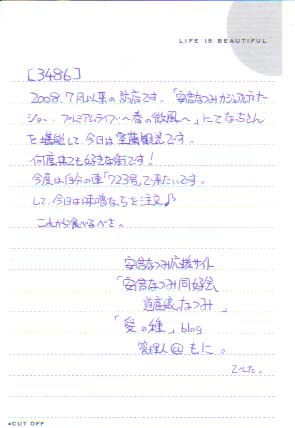 LIFE IS BEAUTIFUL
[3486]
2008.7月以来の訪店です。「安倍なつみカジュアルディナー
ショー・プレミアムライブ…〜春の微風〜」にてなっちさん
を堪能して今日は室蘭観光です。
何度来ても好きな街です!
今度は自分の車「723号」で来たいです。
して、今日は味噌なっちを注文♪
これから食べるべさ。
安倍なつみ応援サイト
「安倍なつみ同好会
道産娘。なつみ」
「愛の種」blog
管理人@もに。
でした。
CUT OFF